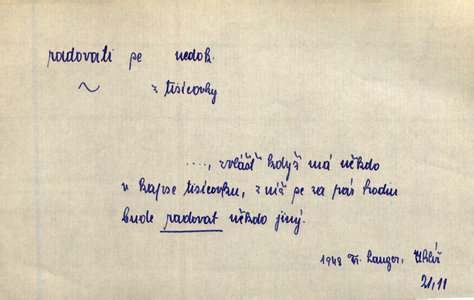 radovati pe nedok.
~ z tisícovky
...., zvlášť když má někdo
v kapse tisícovku, z níž pe za pár hodin
bude radovat někdo jiný.
1948 Fr. Langer,
21,11